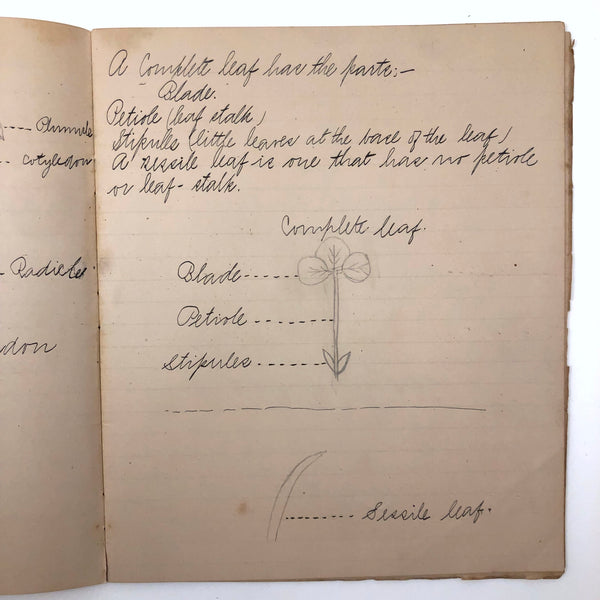 Plumule
Cotyledon
Radicle
A Complete leaf has the parts:-
Blade.
Petiole (leaf stalk)
Stipules (little leaves at the base of the leaf)
A sessile leaf is one that has no petiole
or leaf-stalk.
Complete leaf.
Blade
Petiole
Stipules
Sessile leaf.